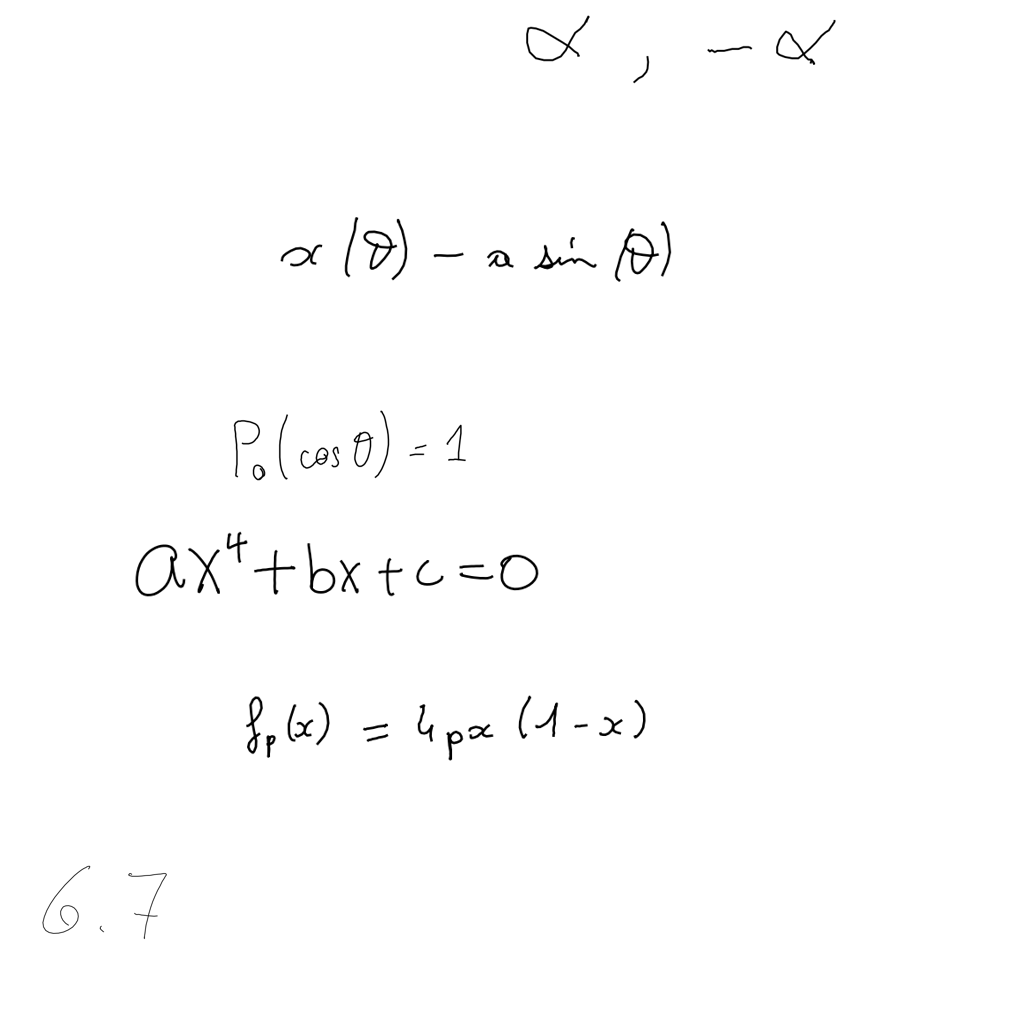 α, -α
x(θ) - a sin(θ)
P₀(cos θ) = 1
ax⁴+bx+c=0
fₚ(x) = 4px(1-x)
6.7